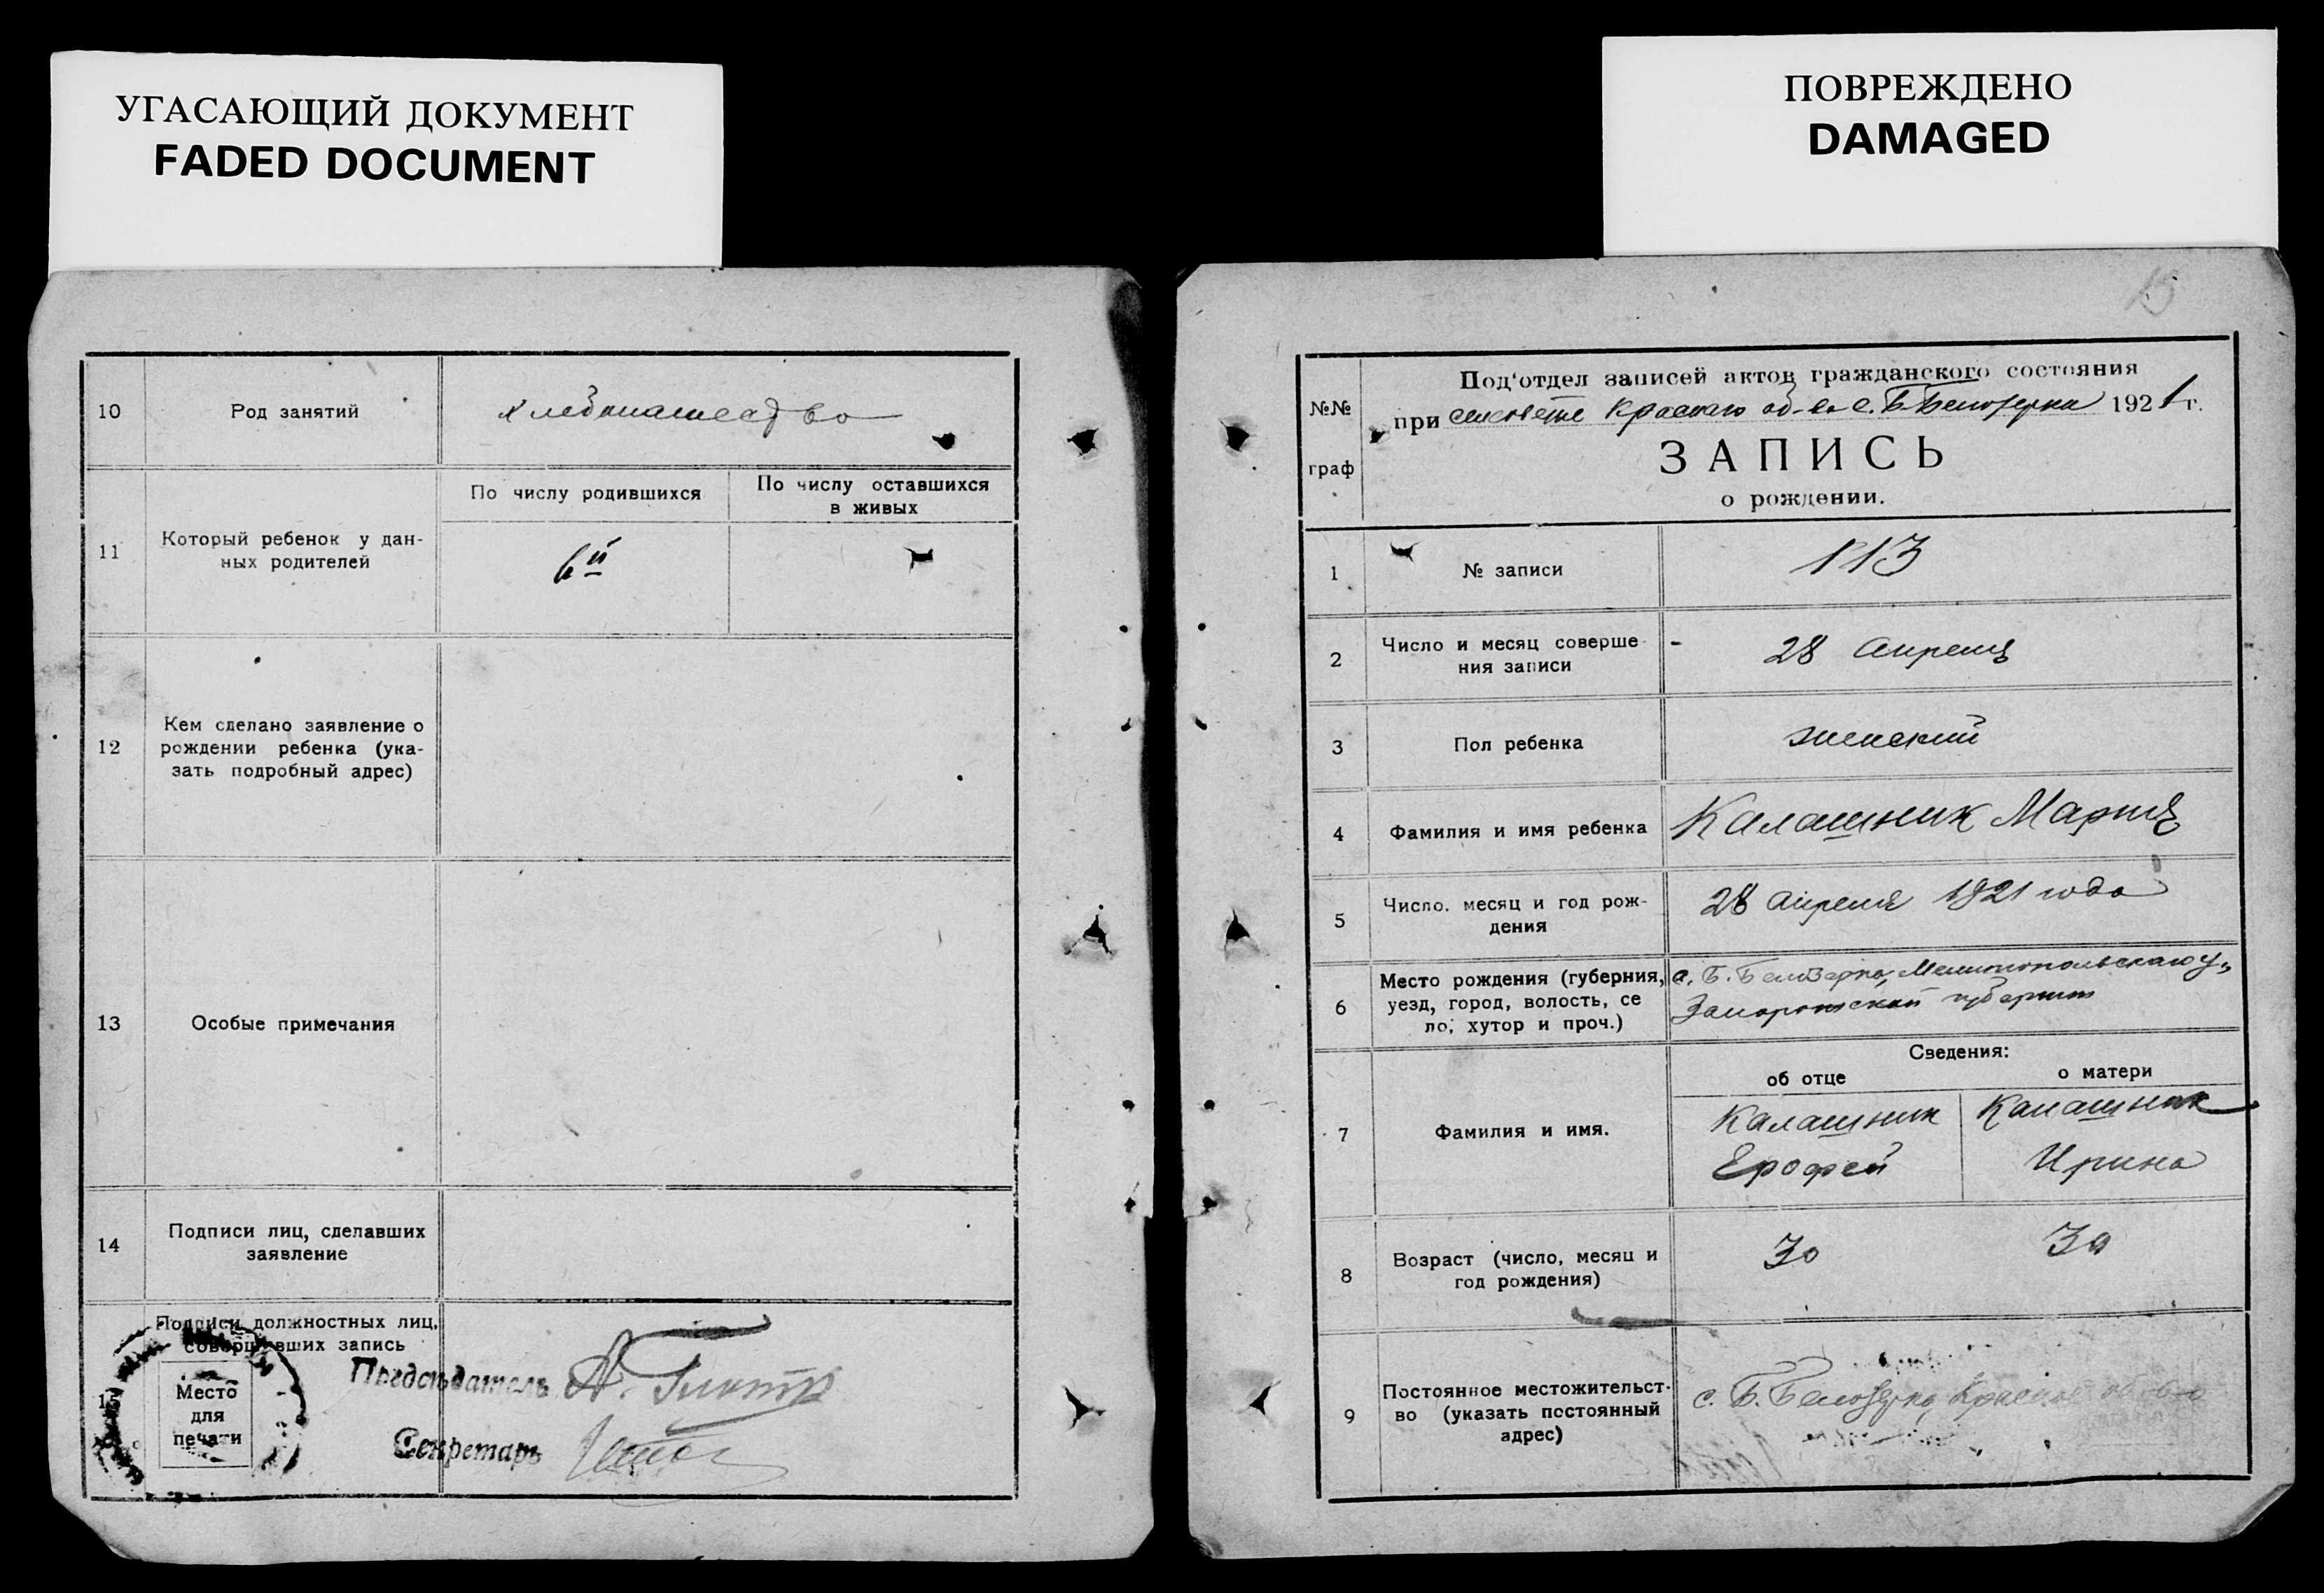 УГАСАЮЩИЙ ДОКУМЕНТ
FADED DOCUMENT
10
Род занятий
хлебопашество
11
Который ребенок у дан-
ных родителей
По числу родившихся
По числу оставшихся
в живых
6й
12
Кем сделано заявление о
рождении ребенка (ука-
зать подробный адрес)
13
Особые примечания
14
Подписи лиц, сделавших
заявление
15
Подписи должностных лиц,
совершивших запись
Место
для
печати
Председатель А.
Секретарь
ПОВРЕЖДЕНО
DAMAGED
15
№№
граф
Под'отдел записей актов гражданского состояния
при об-ва с. Б-Белозерка 1921 г.
ЗАПИСЬ
о рождении.
1
№ записи
113
2
Число и месяц соверше-
ния записи
28 Апреля
3
Пол ребенка
женский
4
Фамилия и имя ребенка
Калашник Мария
5
Число. месяц и год рож-
дения
28 апреля 1921 года
6
Место рождения (губерния,
уезд, город, волость, се
ло, хутор и проч.)
с. Б. Белозерка, Мелитопольскаго у.,
Запорожской губернии
Сведения:
об отце
о матери
7
Фамилия и имя.
Калашник
Ерофей
Калашник
Ирина
8
Возраст (число, месяц и
год рождения)
30
30
9
Постоянное местожительст-
во (указать постоянный
адрес)
с. Б. Белозерка,